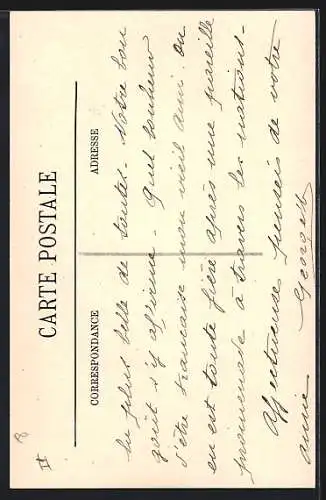 CARTE POSTALE
CORRESPONDANCE
ADRESSE
II
la plus belle de toutes. Notre bon
goût s'y affirme. Quel bonheur
d'être française mon vieil ami. On
en est toute fière après une pareille
promenade à travers les nations.
Affectueuse pensée de votre
amie
Georgette